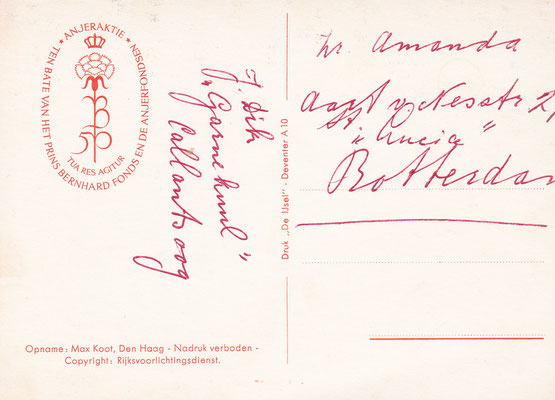 ★ ANJERAKTIE ★
TEN BATE VAN HET PRINS BERNHARD FONDS EN DE ANJERFONDSEN
B
50
TUA RES AGITUR
J. Dik
„Garnekuul"
Callantsoog
Druk „De IJsel" - Deventer A 10
Zr. Amanda
Aart v. Nesstr
St Lucia"
Rotterdam
Opname: Max Koot, Den Haag - Nadruk verboden -
Copyright: Rijksvoorlichtingsdienst.